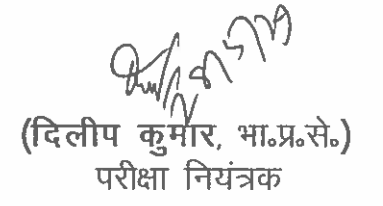 (दिलीप कुमार, भा०प्र०से०)
परीक्षा नियंत्रक